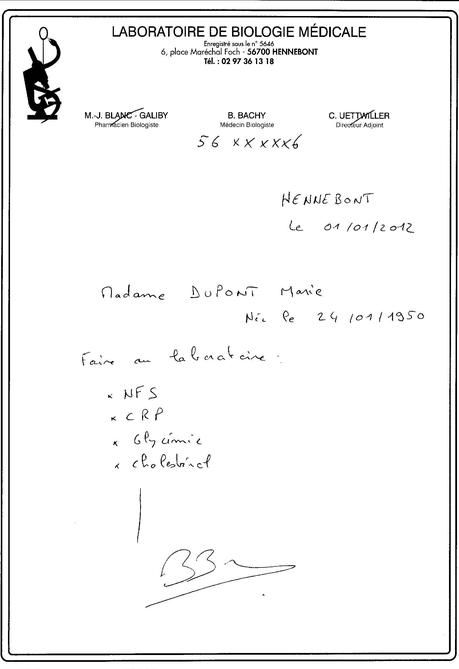 LABORATOIRE DE BIOLOGIE MÉDICALE
Enregistré sous le n° 5646
6, place Maréchal Foch - 56700 HENNEBONT
Tél. : 02 97 36 13 18
M.-J. BLANC - GALIBY B. BACHY C. UETTWILLER
Pharmacien Biologiste Médecin Biologiste Directeur Adjoint
56 xxxxx6
HENNEBONT
Le 01/01/2012
Madame DUPONT Marie
Née le 24/01/1950
Faire au laboratoire :
x NFS
x CRP
x Glycémie
x Cholestérol